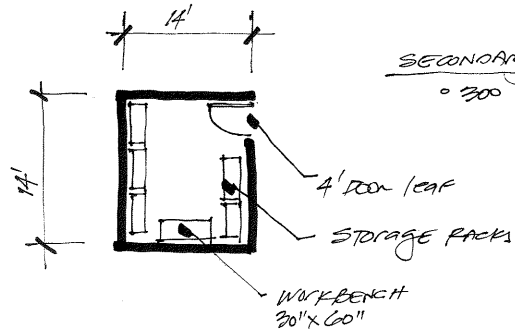 14'
SECONDAR
° 300
14'
4' DOOR leaf
STORAGE RACKS
WORKBENCH
30" x 60"